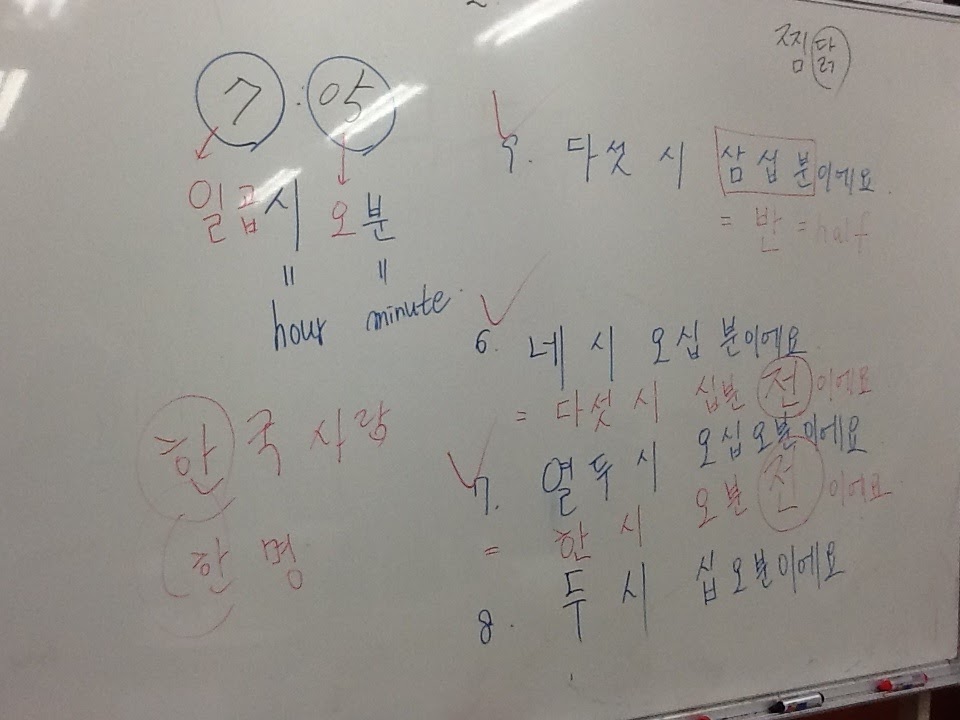 찜닭
7:05
일곱시 오분
= =
hour minute.
한국 사랑
한 명
5. 다섯 시 삼섭분이에요.
= 반 = half
6. 네 시 오십 분이에요.
= 다섯 시 십분 전이에요
7. 열두 시 오십오분이에요
= 한 시 오분 전이에요
8. 두 시 십오분이에요